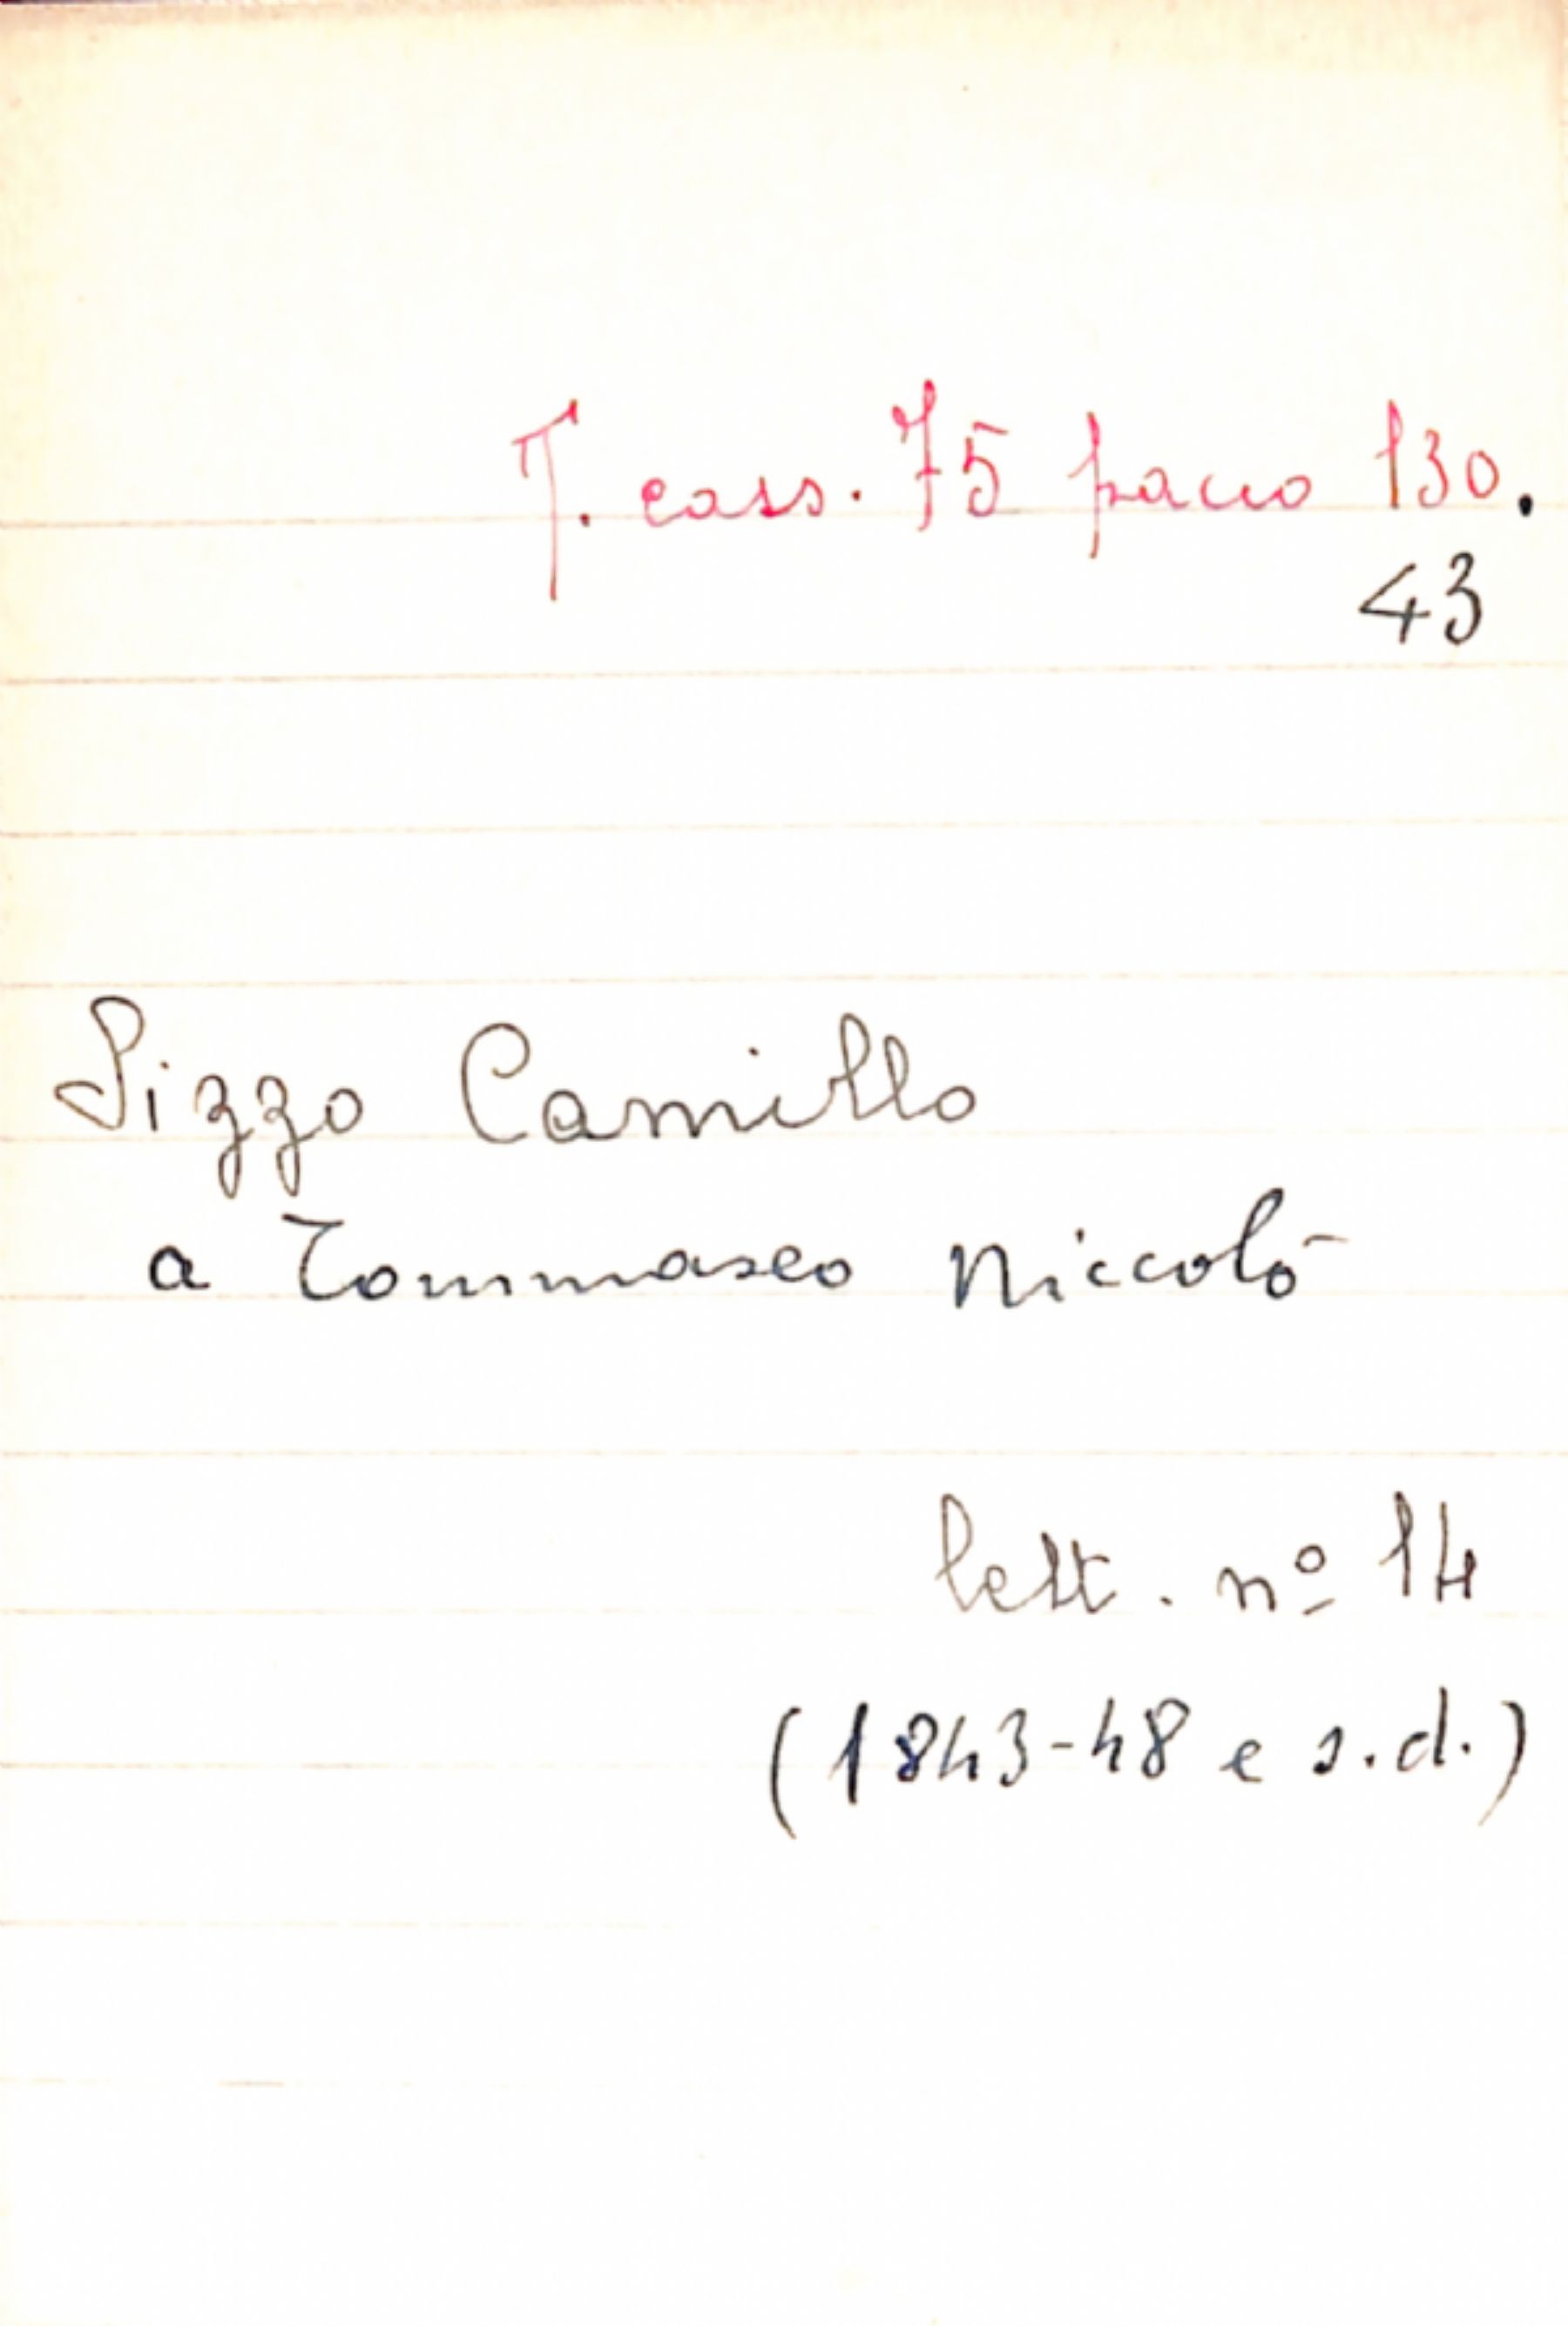 T. cass. 75 pacco 130.
43
Pizzo Camillo
a Tommaseo Niccolò
lett. nº 14
(1843-48 e s.d.)